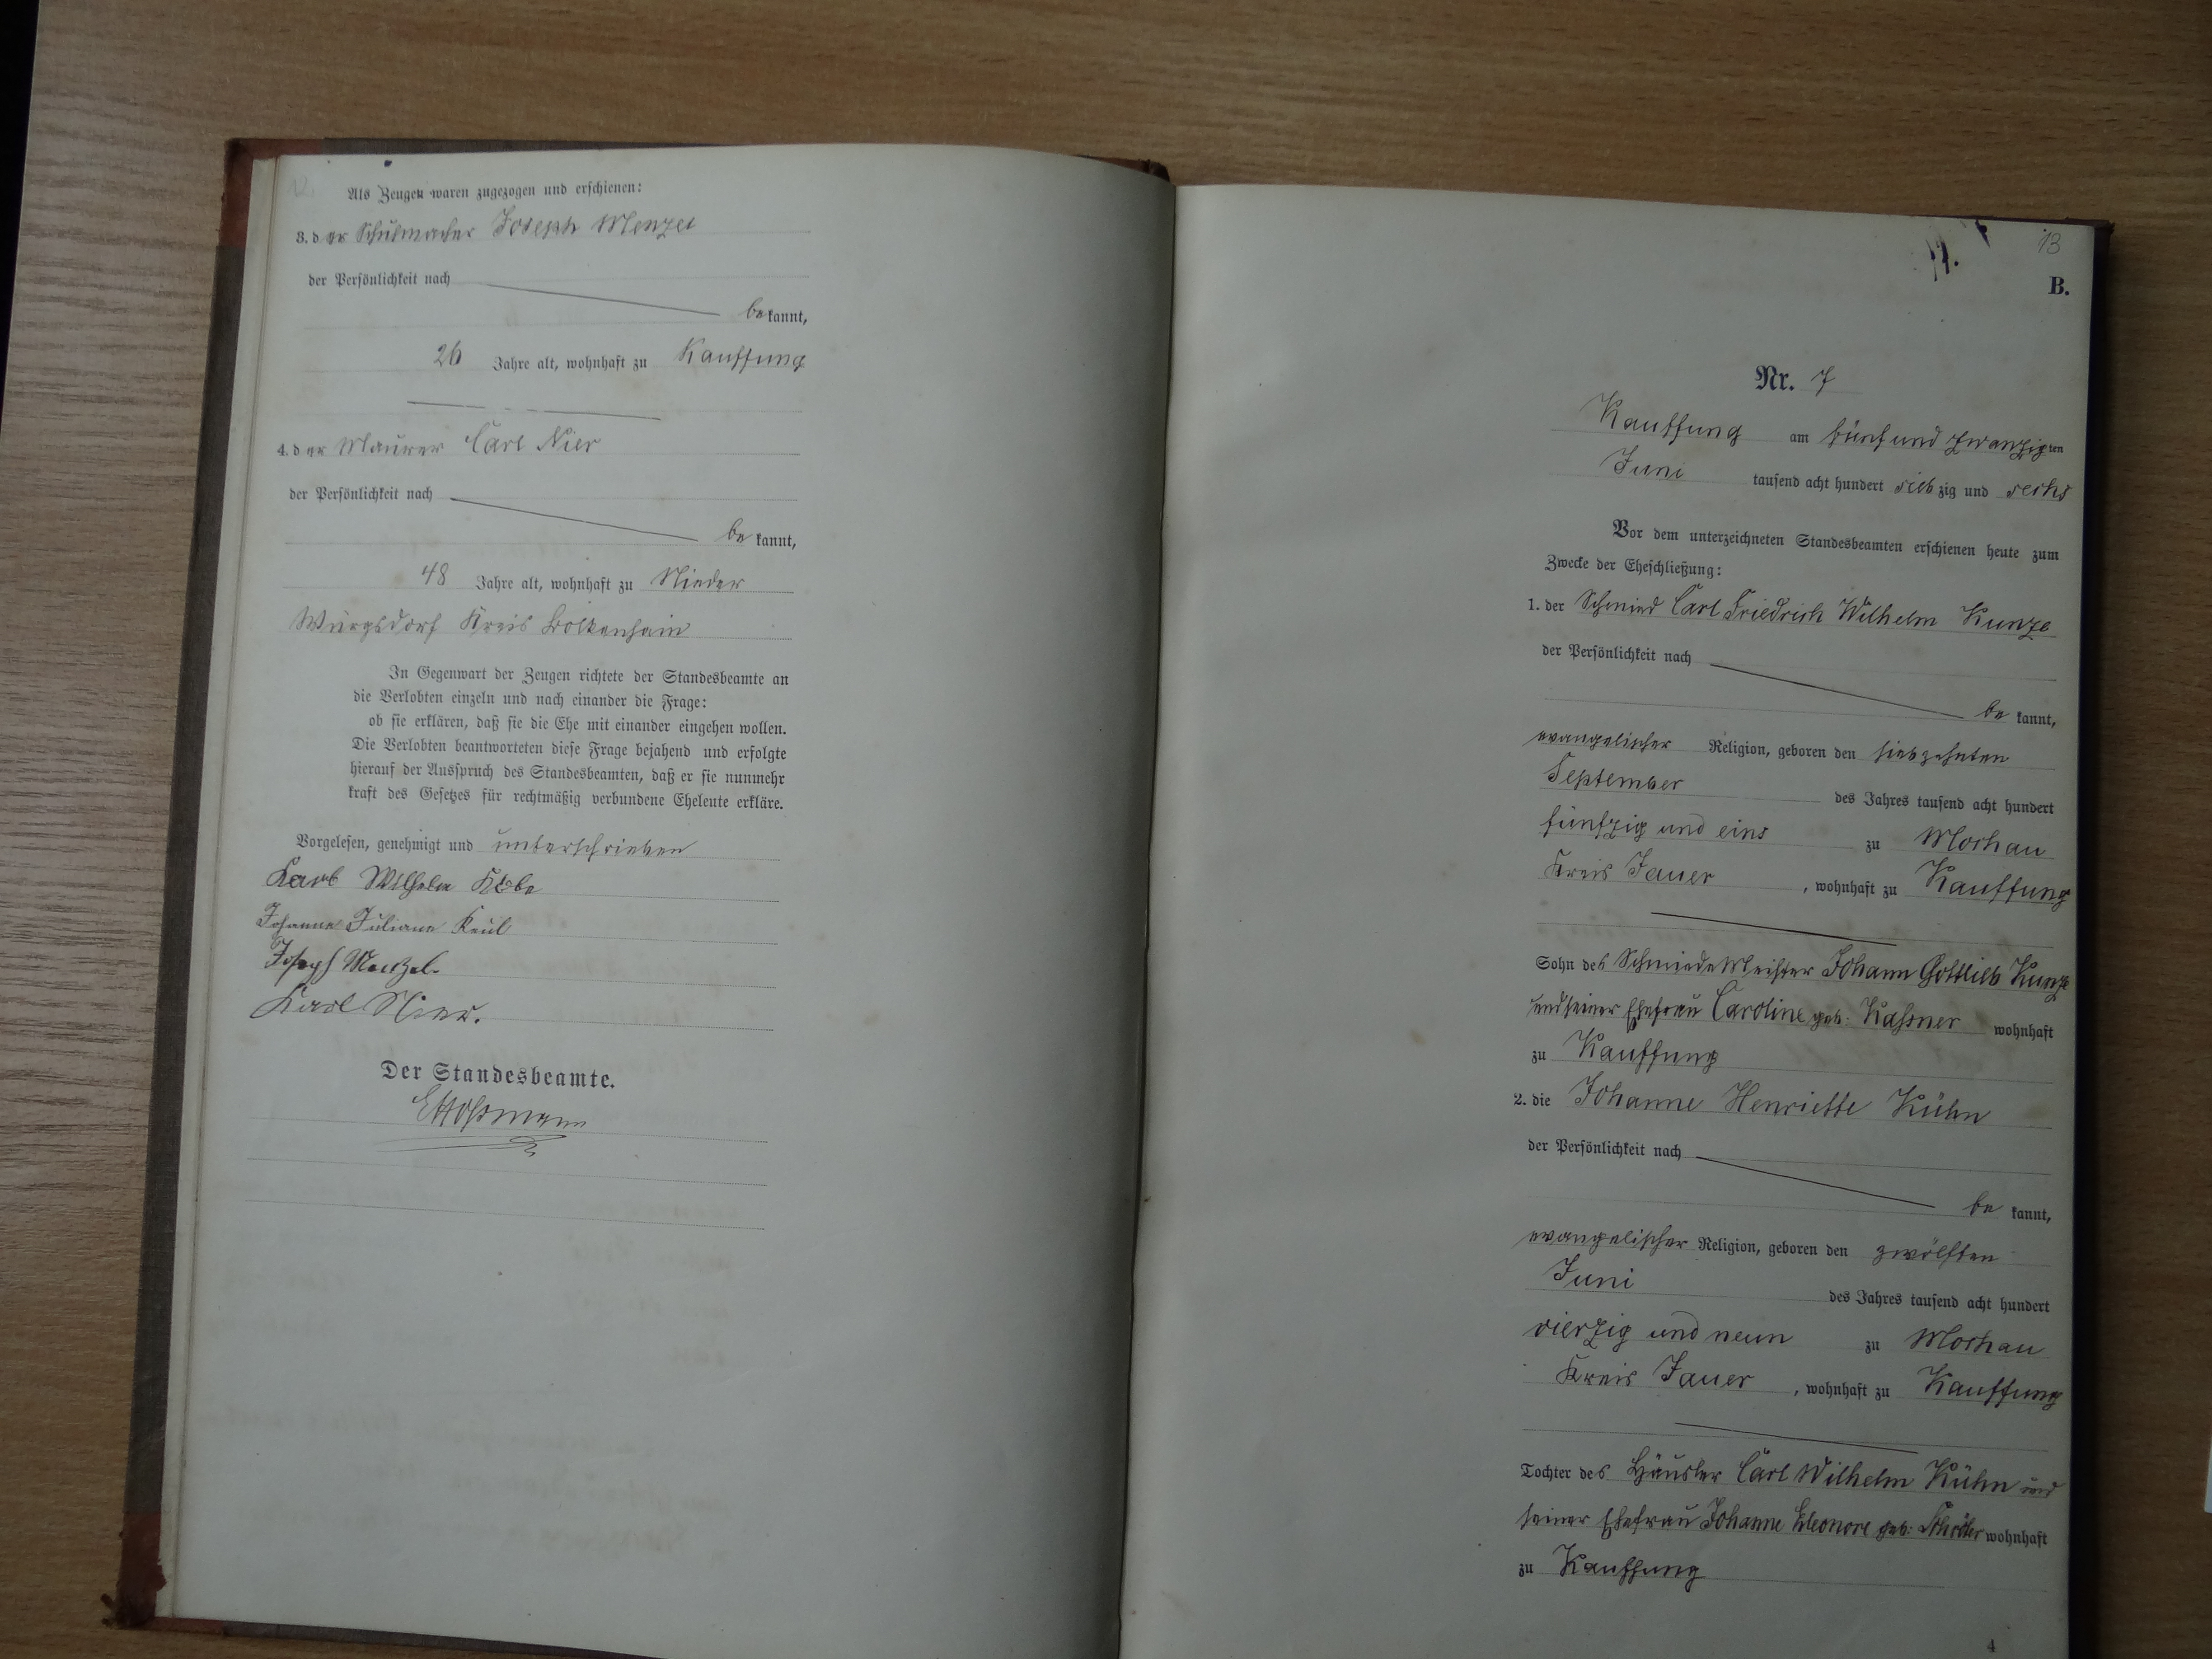 12.
Als Zeugen waren zugezogen und erschienen:
3. der Schuhmacher Joseph Menzel
der Persönlichkeit nach
bekannt,
26 Jahre alt, wohnhaft zu Kauffung
4. der Maurer Carl Nier
der Persönlichkeit nach
bekannt,
48 Jahre alt, wohnhaft zu Nieder
Würgsdorf Kreis Bolkenhain
In Gegenwart der Zeugen richtete der Standesbeamte an
die Verlobten einzeln und nach einander die Frage:
ob sie erklären, daß sie die Ehe mit einander eingehen wollen.
Die Verlobten beantworteten diese Frage bejahend und erfolgte
hierauf der Ausspruch des Standesbeamten, daß er sie nunmehr
kraft des Gesetzes für rechtmäßig verbundene Eheleute erkläre.
Vorgelesen, genehmigt und unterschrieben
Karl Wilhelm
Johanne Juliane Keul
Joseph Menzel.
Karl Nier.
Der Standesbeamte.
13
B.
Nr. 7
Kauffung am fünf und zwanzigten
Juni tausend acht hundert siebzig und sechs
Vor dem unterzeichneten Standesbeamten erschienen heute zum
Zwecke der Eheschließung:
1. der Schmied Carl Friedrich Wilhelm Kunze
der Persönlichkeit nach
bekannt,
evangelischer Religion, geboren den siebzehnten
September des Jahres tausend acht hundert
fünfzig und eins zu Mochau
Kreis Jauer, wohnhaft zu Kauffung
Sohn des Schmiede Meister Johann Gottlieb Kunze
und seiner Ehefrau Caroline geb: Kassner wohnhaft
zu Kauffung
2. die Johanne Henriette Kühn
der Persönlichkeit nach
bekannt,
evangelischer Religion, geboren den zwölften
Juni des Jahres tausend acht hundert
vierzig und neun zu Mochau
Kreis Jauer, wohnhaft zu Kauffung
Tochter des Häusler Carl Wilhelm Kühn und
seiner Ehefrau Johanne Eleonore geb: wohnhaft
zu Kauffung
4